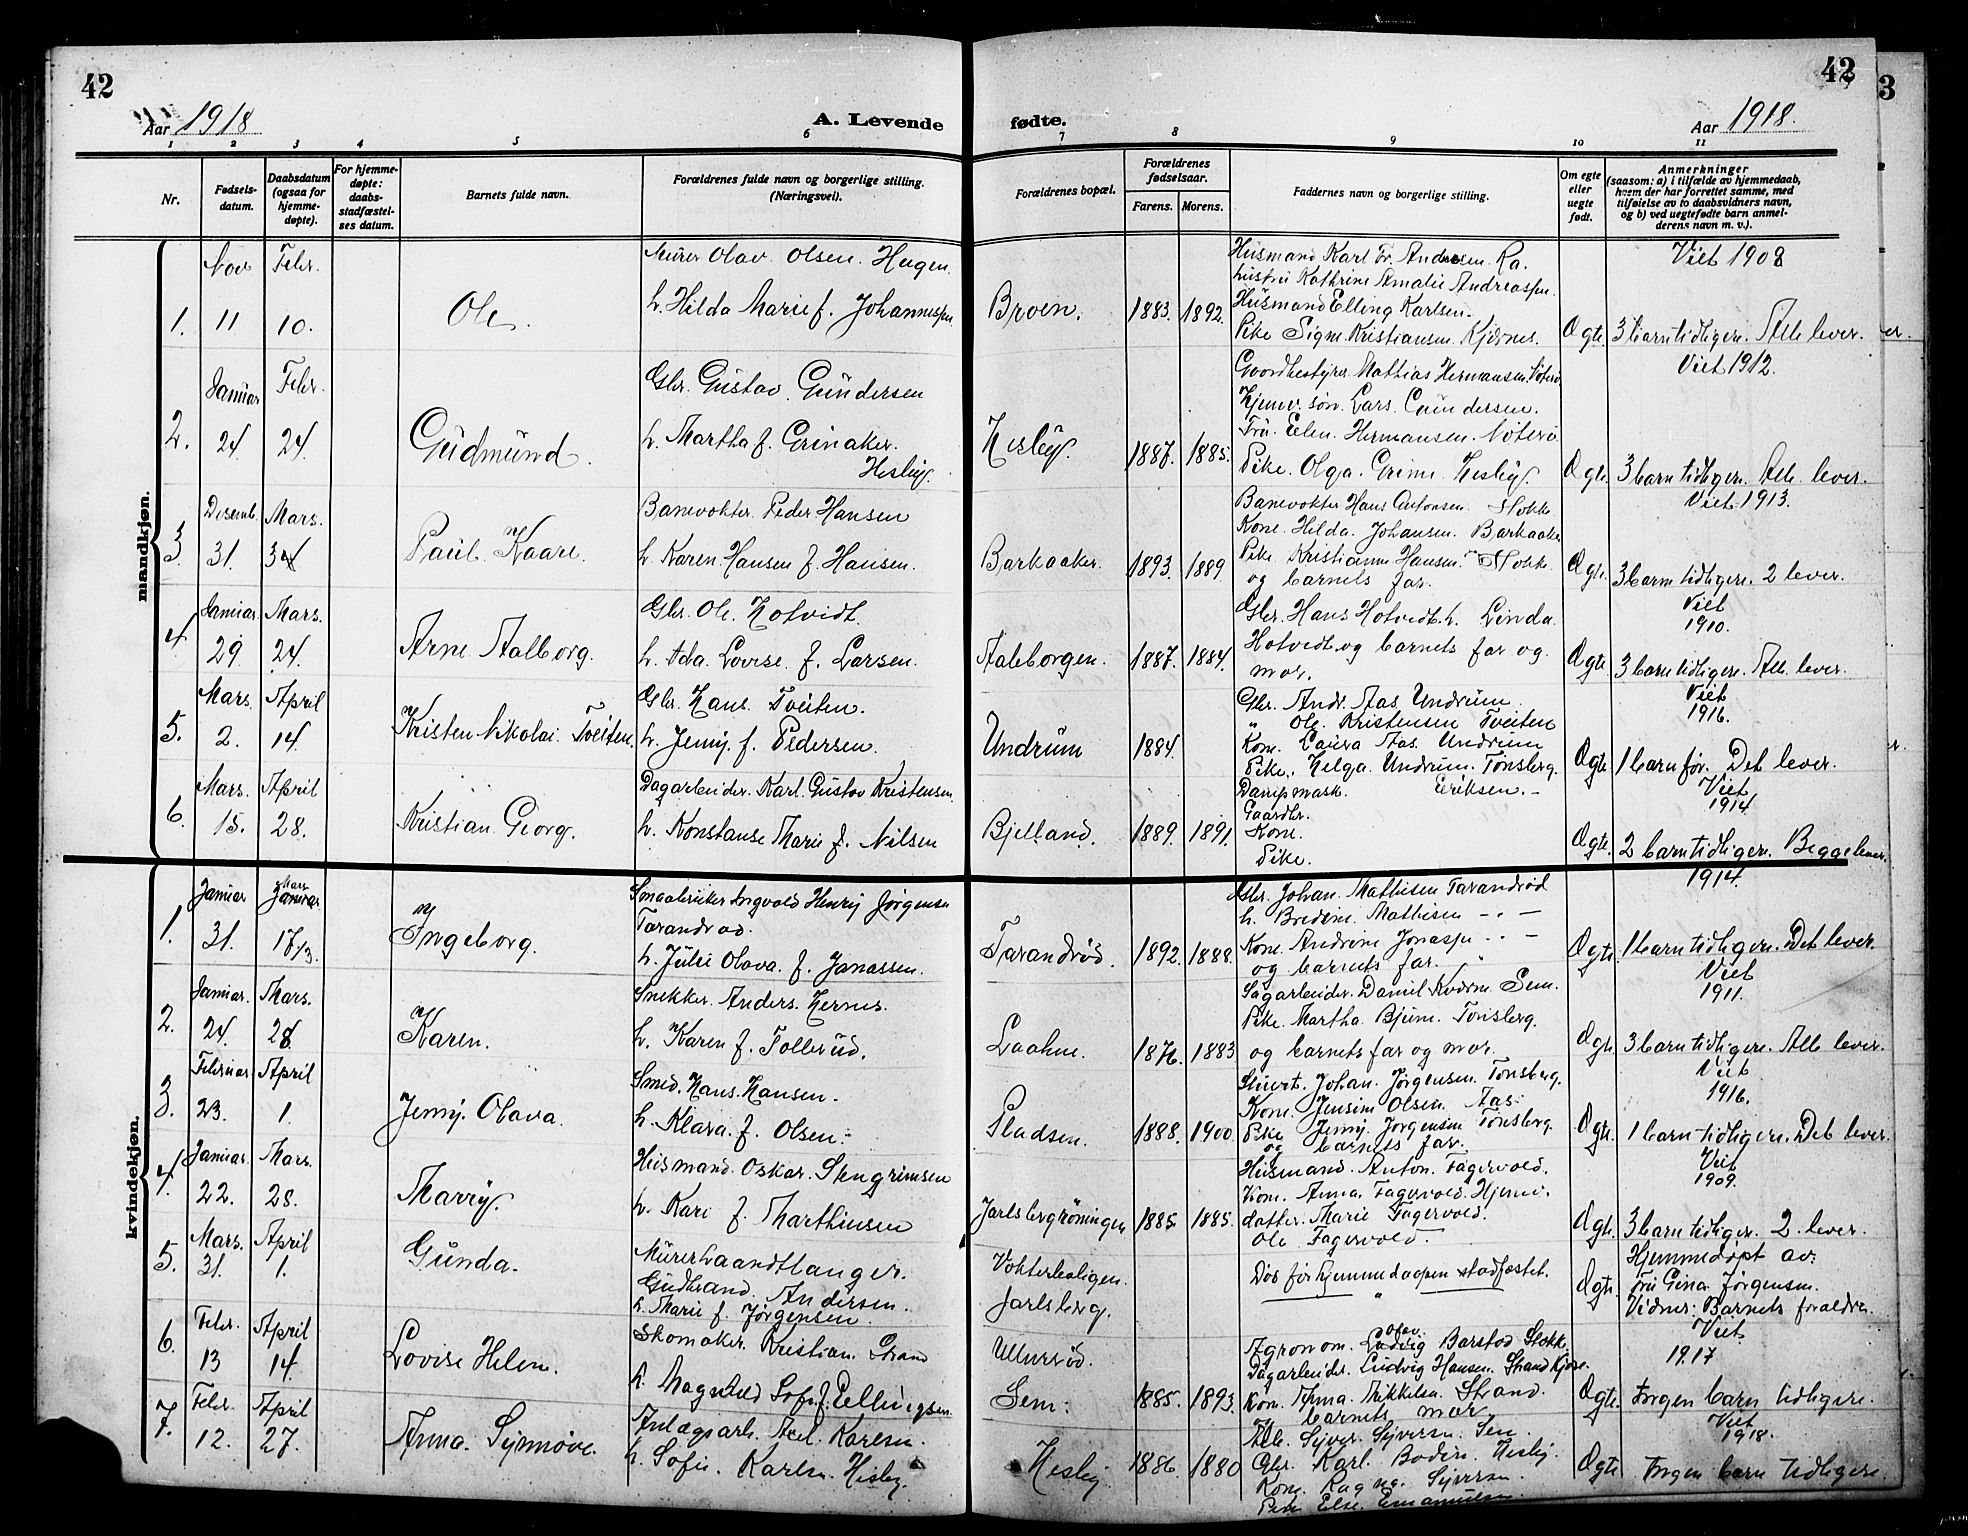 42
42
3
Aar 1918
A. Levende fødte.
Aar 1918.
1 2 3 4 5 6 7 8 9 10 11
Nr.
Fødsels-
datum.
Daabsdatum
(ogsaa for
hjemme-
døpte).
For hjemme-
døpte:
daabs-
stadfæstel-
ses datum.
Barnets fulde navn.
Forældrenes fulde navn og borgerlige stilling.
(Næringsvei).
Forældrenes bopæl.
Forældrenes
fødselsaar.
Farens. Morens.
Faddernes navn og borgerlige stilling.
Om egte
eller
uegte
født.
Anmerkninger
(saasom: a) i tilfælde av hjemmedaab,
hvem der har forrettet samme, med
tilføielse av to daabsvidners navn,
og b) ved uegtefødte barn anmel-
derens navn m. v.).
mandkjøn.
1.
Nov
11
Febr.
10.
Ole.
Murer Olav Olsen Haugen
h. Hilda Marie f. Johannesen
Broen.
1883. 1892.
Husmand Karl Fr. Andresen Ra.
hustru Kathrine Amalie Andreasen.
Husmand Elling Karlsen.
Pike Signe Kristiansen Kjærnes.
Egte.
Viet 1908
3 barn tidligere. Alle lever.
2.
Januar
24
Febr.
24.
Gudmund.
Gbr. Gustav Gundersen
h. Martha f. Grinaker.
Hesby.
Hesby.
1887. 1885.
Goordbestyrer Mathias Hermansen Nøterø
Hjemv. søn Lars Gundersen.
Fru Elen Hermansen Nøterø
Pike. Olga Grime Hesby.
Egte.
Viet 1912.
3 barn tidligere. Alle lever.
3
Desemb.
31.
Mars.
31
Paul Kaare.
Banevokter Peder Hansen
h. Karen Hansen f. Hansen.
Barkaaker.
1893. 1889.
Banevokter Hans Antonsen Stokke
Kone Hilda Johansen Barkaaker
Pike Kristianne Hansen Stokke
og barnets far.
Egte.
Viet 1913.
3 barn tidligere. 2 lever.
4
Januar.
29.
Mars.
24.
Arne Aalborg.
Gbr. Ole Hotvedt.
h. Ada Lovise f. Larsen.
Aaleborgen.
1887. 1884.
Gbr. Hans Hotvedt h. Linda
Hotvedt og barnets far og
mor.
Egte.
Viet
1910.
3 barn tidligere. Alle lever.
5.
Mars.
2.
April
14.
Kristen Nikolai Tveiten.
Gbr. Hans Tveiten.
h. Jenny f. Pedersen.
Undrum
1884.
Gbr. Andr. Aas Undrum.
" Ole Kristensen Tveiten
Kone Laura Aas Undrum
Pike. Helga Undrum. Tønsberg.
Egte.
Viet
1916.
1 barn før. Det lever.
6.
Mars.
15.
April
28.
Kristian Georg.
Dagarbeider Karl Gustav Kristensen.
h. Konstanse Marie f. Nilsen
Bjelland.
1889. 1891.
Dampmask. Eriksen.
Gaardbr.
Kone.
Pike.
Egte.
Viet
1914.
2 barn tidligere. Begge lever.
kvindekjøn.
1.
Januar
31.
Mars
Januar
17/3.
Ingeborg.
Smaabruker Ingvald Henry Jørgensen
Tarandrød.
h. Julie Olava f. Jonassen.
Tarandrød.
1892. 1888.
Gbr. Johan Mathisen Tarandrød
h. Bredine Mathisen
Kone Andrine Jonassen
og barnets far.
Egte.
1914.
1 barn tidligere. Det lever.
2.
Januar.
24.
Mars.
28.
Karen.
Snekker Anders Hernes.
h. Karen f. Tollerud.
Laahne.
1876. 1883
Sagarbeider Daniel Kværne Sem.
Pike Martha Bjune Tønsberg.
og barnets far og mor.
Egte
Viet
1911.
3 barn tidligere. Alle lever.
3.
Februar
23.
April
1.
Jenny Olava.
Smed Hans Hansen.
h. Klara f. Olsen.
Pladsen.
1888. 1900
Johan Jørgensen Tønsberg.
Kone Jensine Olsen Aas.
Pike Jenny Jørgensen Tønsberg.
og barnets far.
Egte.
Viet
1916.
1 barn tidligere. Det lever.
4.
Januar.
22.
Mars.
28.
Marry.
Husmand Oskar Stengrimsen
h. Kari f. Marthinsen
Jarlsbergrøningen
1885 1885.
Husmand Anton Fagervold.
Kone Anna Fagervold. Hjemv.
datter. Marie Fagervold.
Ole Fagervold.
Egte.
Viet
1909.
3 barn tidliger. 2 lever.
5.
Mars.
31.
April
1.
Gunda.
Murerhaandtlanger
Gudbrand Andersen.
h. Marie f. Jørgensen.
Vokterboligen.
Jarlsberg.
Død før hjemmedaapen stadfæstet.
Egte
Hjemmedøpt av:
Fru Gina Jørgensen.
Vidner: Barnets foraldre.
6.
Febr.
13
April
14.
Lovise Helen.
Skomaker Kristian Strand
h. Magnhild Sofie f. Ellingsen.
Ullerød.
Sem.
1885. 1893.
Agronom Olav Ludvig Barstad Stokke
Dagarbeider Ludvig Hansen Strand
Kone Anna Mikkelsen Strand.
og barnets mor.
Egte.
Viet
1917
Ingen barn tidligere.
7.
Febr.
12.
April
27.
Anna Synnøve.
Anlægsarb. Axel Karlsen.
h. Sofie Karlsen Hesby.
Hesby
1886. 1880
Arb. Syver Syversen Sem.
Gbr. Karl Bodin Hesby.
Kone Ragna Syversen.
Pike Else Emanuelsen.
Egte
Viet
1918.
Ingen barn tidligere.